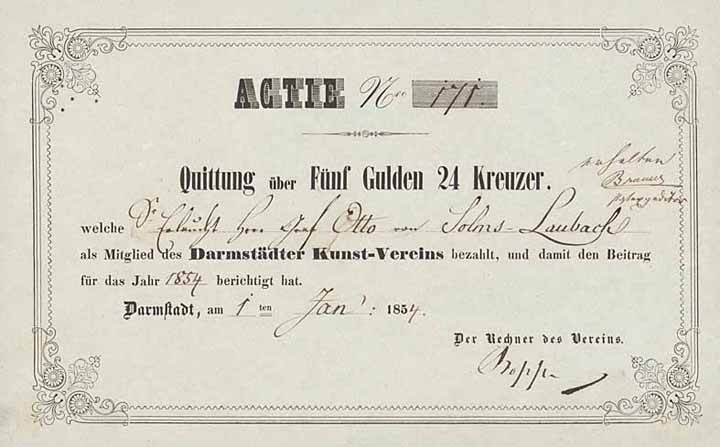 ACTIE Nro 171.
Quittung über Fünf Gulden 24 Kreuzer.
erhalten
welche Sr Erlaucht Herr Graf Otto von Solms-Laubach
als Mitglied des Darmstädter Kunst-Vereins bezahlt, und damit den Beitrag
für das Jahr 1854 berichtigt hat.
Darmstadt, am 1 ten Jan: 1854.
Der Rechner des Vereins.